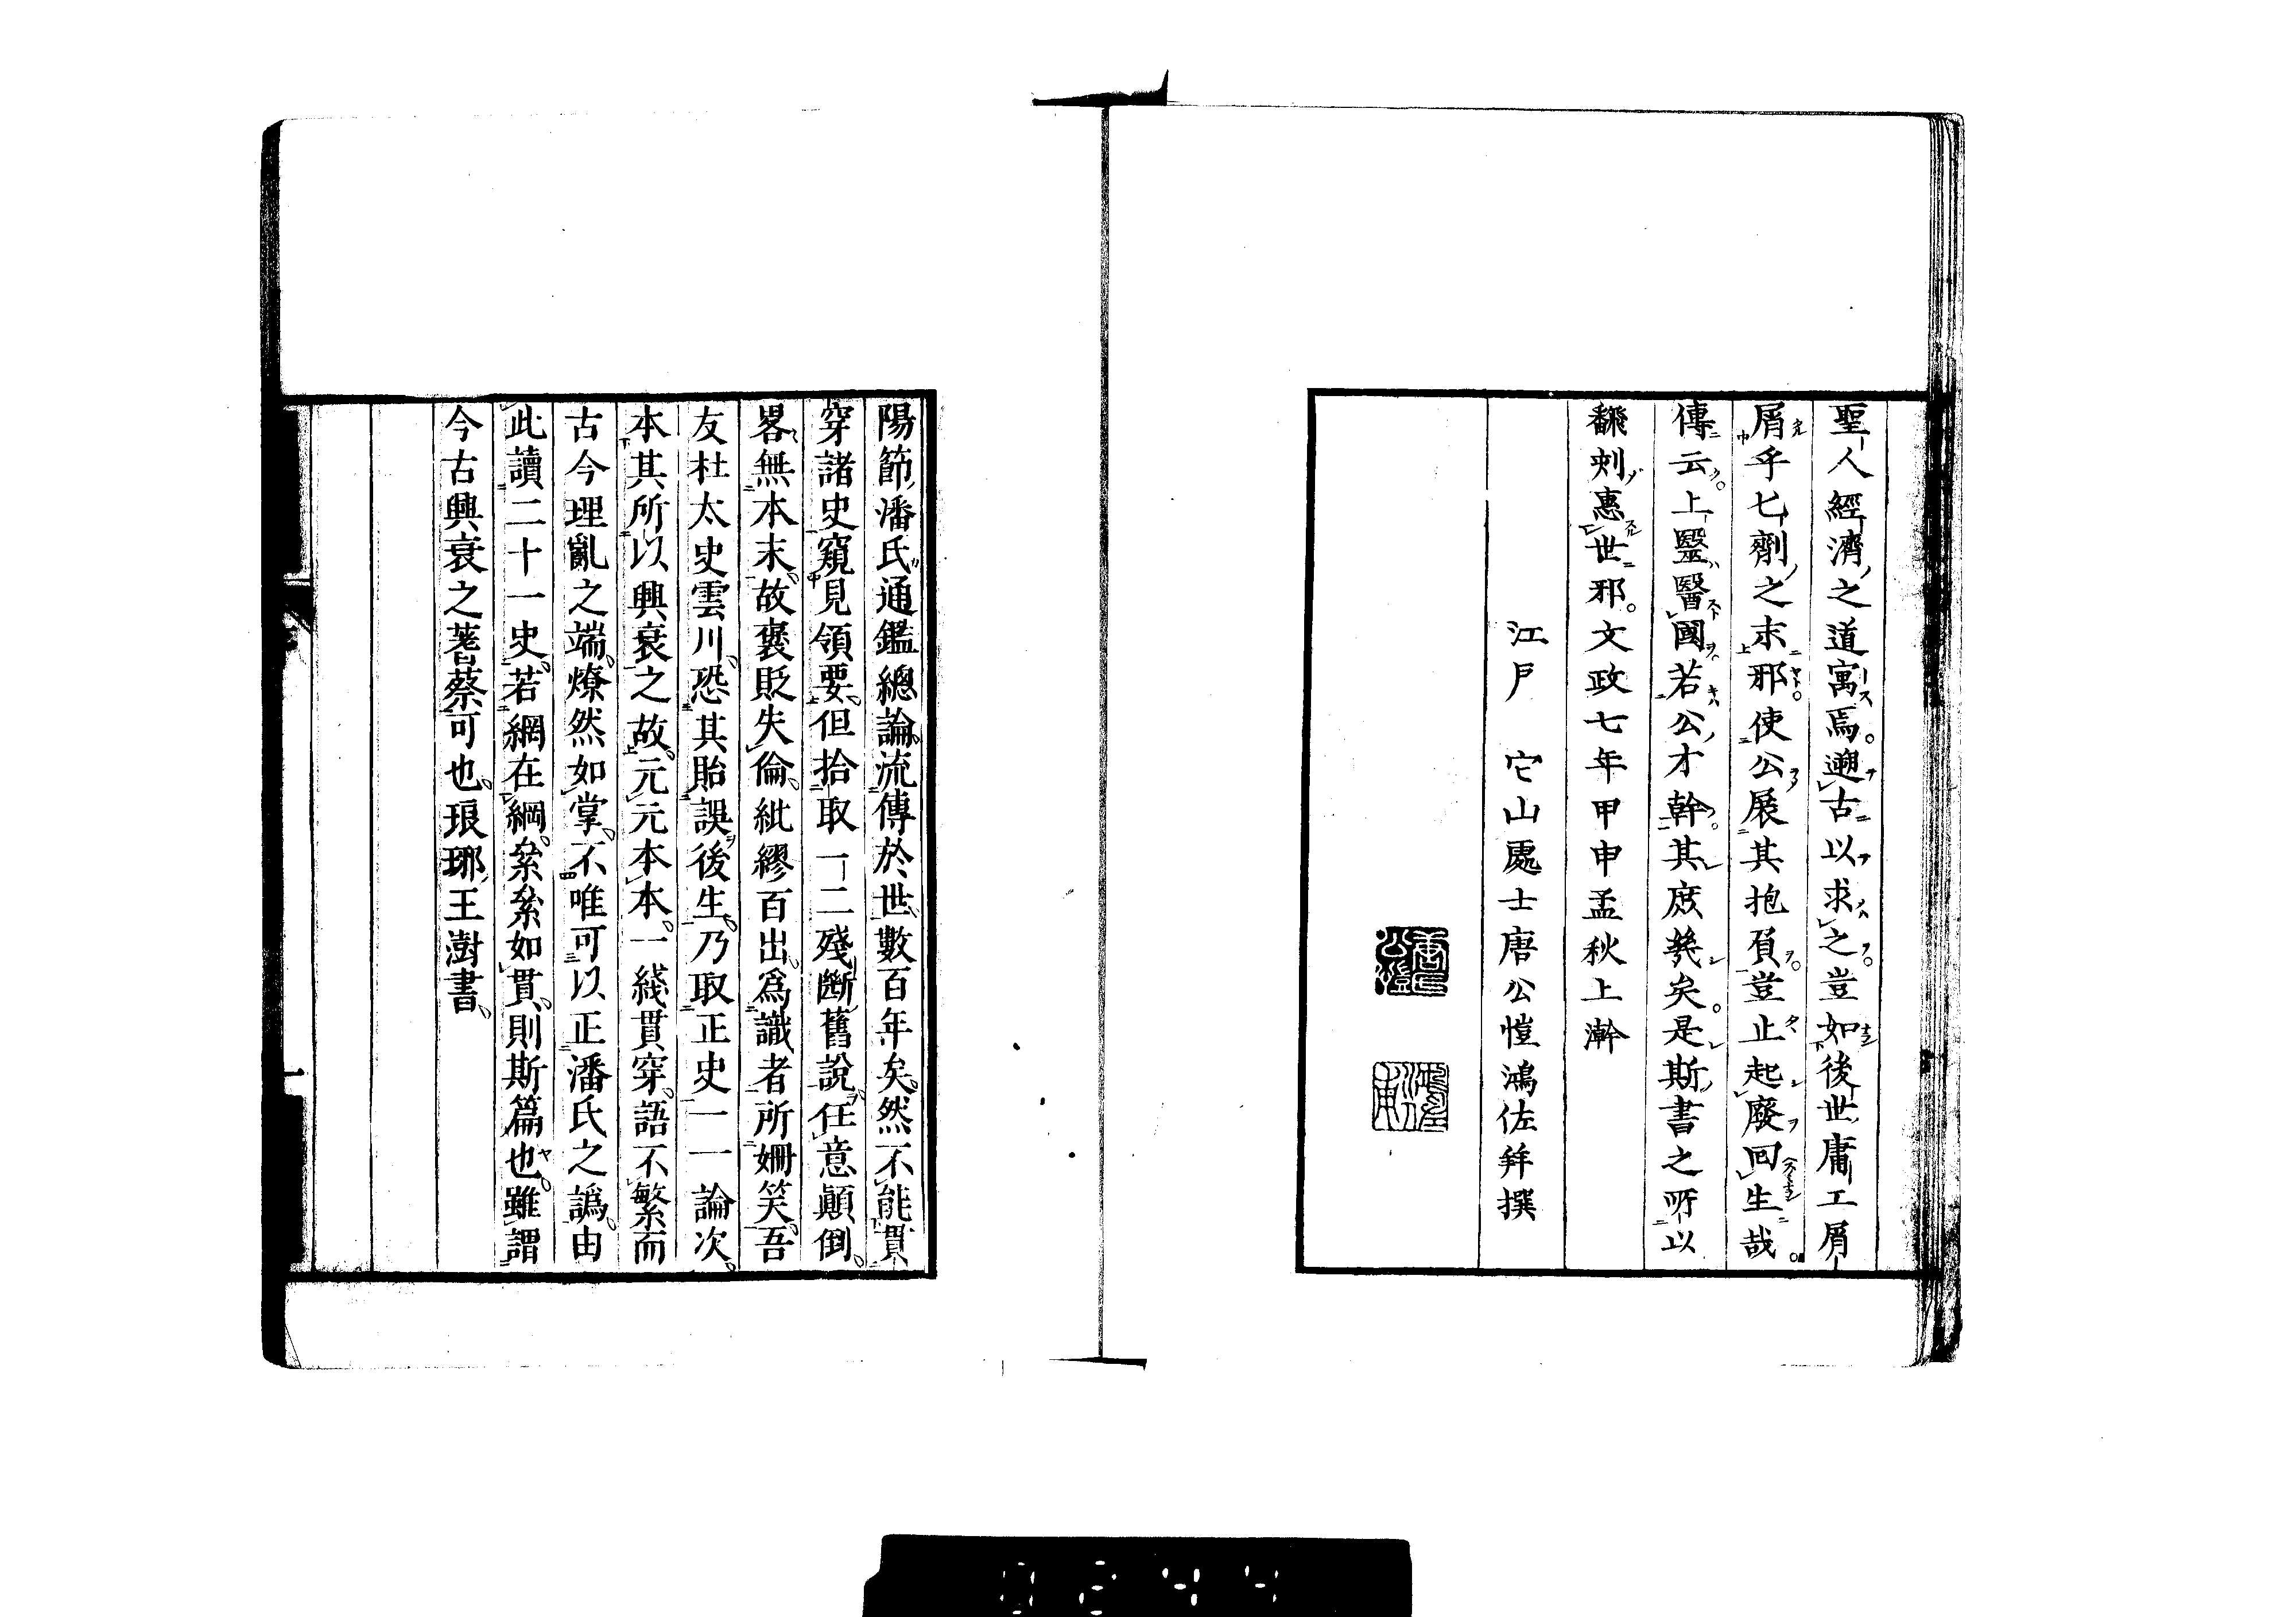 聖人經濟之道寓焉遡古以求之豈如後世庸工屑
屑乎匕劑之末邪使公展其抱負豈止起廢回生哉
傳云上毉醫國若公才幹其庶幾矣是斯書之所以
飜刻惠世邪文政七年甲申孟秋上澣
江戸　它山處士唐公愷鴻佐幷撰
陽節潘氏通鑑總論流傳於世數百年矣然不能貫
穿諸史窺見領要但拾取一二殘斷舊說任意顛倒
畧無本末故褒貶失倫紕繆百出爲識者所姍笑吾
友杜太史雲川恐其貽誤後生乃取正史一一論次
本其所以興衰之故元元本本一綫貫穿語不繁而
古今理亂之端燎然如掌不唯可以正潘氏之譌由
此讀二十一史若網在綱絫絫如貫則斯篇也雖謂
今古興衰之蓍蔡可也琅琊王澍書
一
0244